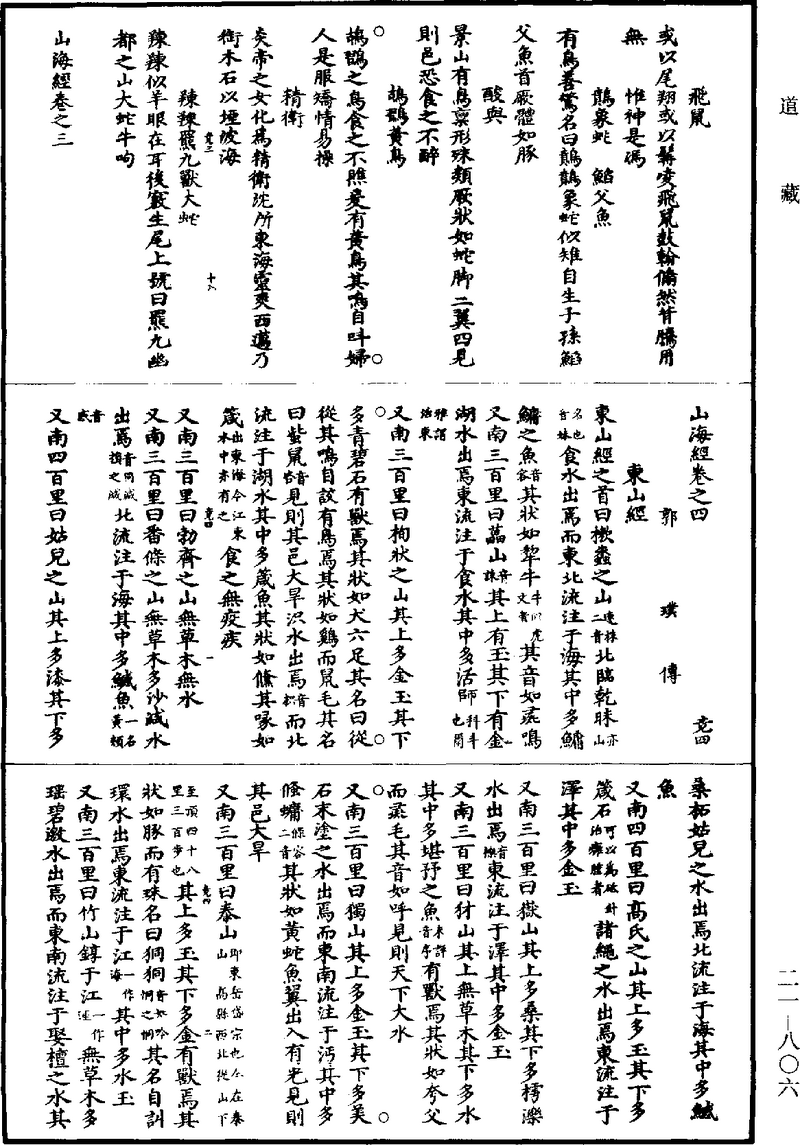 道藏
飛鼠
或以尾翔或以髯凌飛鼠鼓翰翛然背騰用
無　惟神是馮
鷾象蛇　鮨父魚
有鳥善驚名曰鷾鷾象蛇似雉自生子孫鮨
父魚首厥體如豚
酸與
景山有鳥稟形殊類厥狀如蛇脚二翼四見
則邑恐食之不醉
鴣鸐黃鳥
鴣鸐之鳥食之不瞧爰有黃鳥其鳴自叫婦
人是服矯情易操
精衛
炎帝之女化為精衛沈所東海靈爽西邁乃
銜木石以堙波海
竞三　十六
辣辣羆九獸大蛇
辣辣似羊眼在耳後竅生尾上號曰羆九幽
都之山大蛇牛呴
山海經卷之三
山海經卷之四　竞四
郭璞傳
東山經
東山經之首曰樕䗤之山速株二音北臨乾昧亦山名也音妹
食水出焉而東北流注于海其中多鱅
鱅之魚音容其狀如犂牛牛似虎文者其音如彘鳴
又南三百里曰藟山音誄其上有玉其下有金
湖水出焉東流注于食水其中多活師科斗也爾雅謂活東
又南三百里曰枸狀之山其上多金玉其下
多青碧石有獸焉其狀如犬六足其名曰從
從其鳴自詨有鳥焉其狀如鷄而鼠毛其名
曰蚩鼠音咨見則其邑大旱沢水出焉音枳而北
流注于湖水其中多箴魚其狀如儵其喙如
箴出東海今江東水中亦有之食之無疫疾
竞四　一
又南三百里曰勃齊之山無草木無水
又南三百里曰番條之山無草木多沙減水
出焉音同減損之減北流注于海其中多鱤魚一名黃頰音感
又南四百里曰姑兒之山其上多漆其下多
桑柘姑兒之水出焉北流注于海其中多鱤
魚
又南四百里曰高氏之山其上多玉其下多
箴石可以為砭針治癰腫者諸繩之水出焉東流注于
澤其中多金玉
又南三百里曰嶽山其上多桑其下多樗濼
水出焉音樂東流注于澤其中多金玉
又南三百里曰犲山其上無草木其下多水
其中多堪㐨之魚未詳音序有獸焉其狀如夸父
而彘毛其音如呼見則天下大水
又南三百里曰獨山其上多金玉其下多美
石末塗之水出焉而東南流注于沔其中多
偹䗤條容二音其狀如黃蛇魚翼出入有光見則
其邑大旱
又南三百里曰泰山即東岳岱宗也今在泰山　高縣西北從山下至頂四十八里三百步也
竞四　二
其上多玉其下多金有獸焉其
狀如豚而有珠名曰狪狪音如吟恫之恫其名自訓
環水出焉東流注于江一作海其中多水玉
又南三百里曰竹山錞于江一作涯無草木多
瑶碧激水出焉而東南流注于娶檀之水其
二一—八〇六